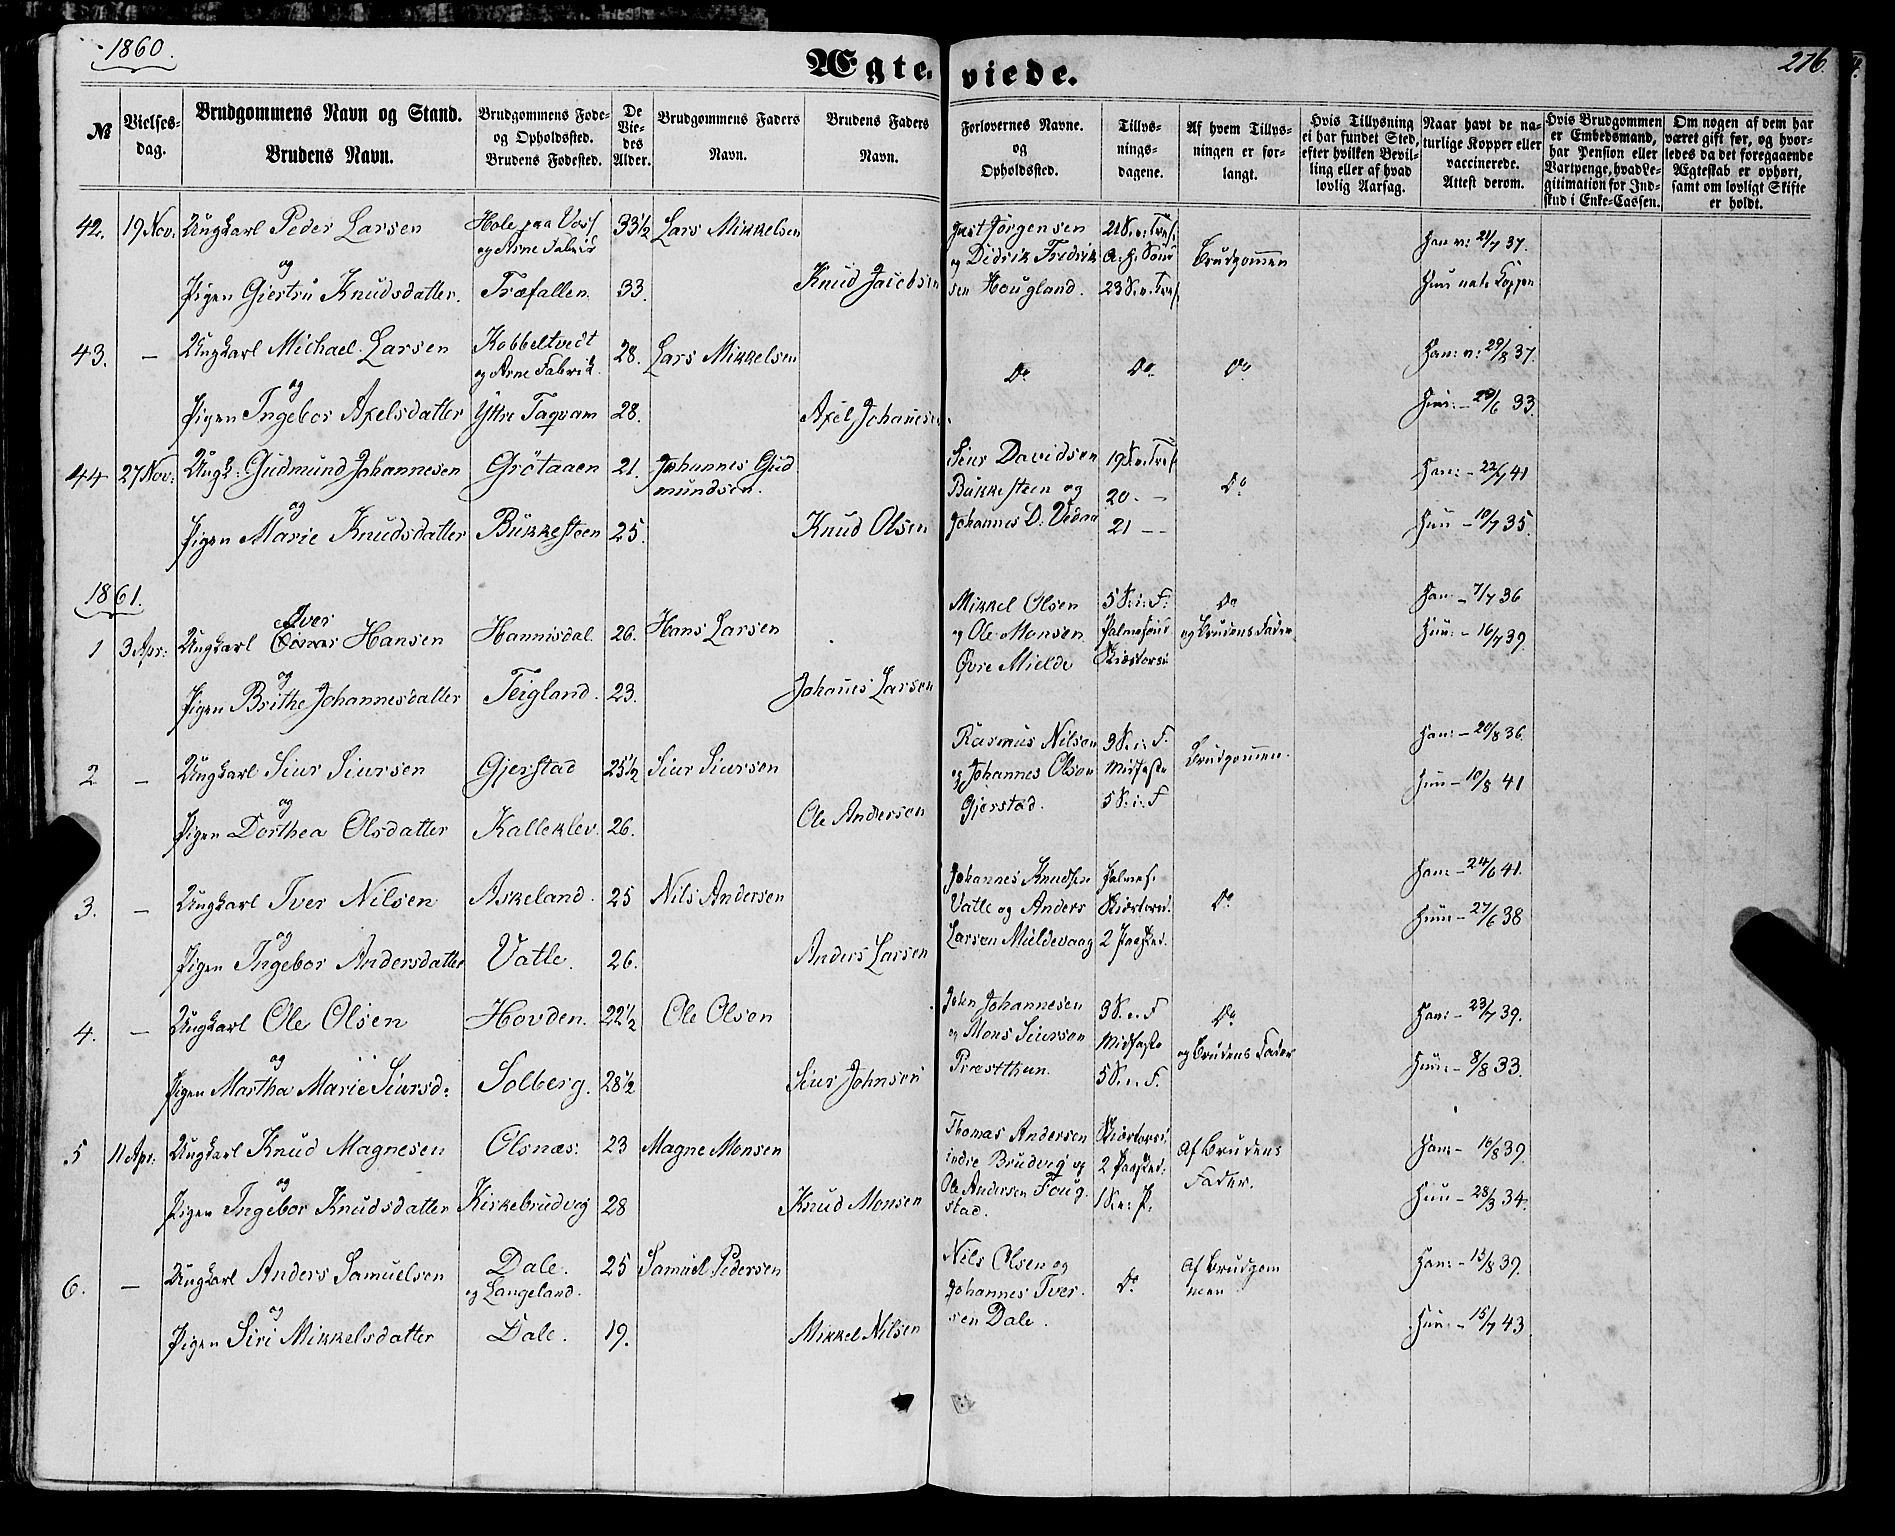 1860.
Ægte-
viede.
276.
№
Vielses-
dag.
Brudgommens Navn og Stand.
Brudens Navn.
Brudgommens Føde-
og Opholdssted.
Brudens Fødested.
De
Vie-
des
Alder.
Brudgommens Faders
Navn.
Brudens Faders
Navn.
Forlovernes Navne.
og
Opholdssted.
Tillys-
nings-
dagene.
Af hvem Tillys-
ningen er for-
langt.
Hvis Tillysning
ei har fundet Sted,
efter hvilken Bevil-
ling eller af hvad
lovlig Aarsag.
Naar havt de na-
turlige Kopper eller
vaccinerede.
Attest derom.
Hvis Brudgommen
er Embedsmand,
har Pension eller
Vartpenge, hvad Le-
gitimation for Ind-
skud i Enke-Cassen.
Om nogen af dem har
været gift før, og hvor-
ledes da det foregaaende
Ægteskab er ophørt,
samt om lovligt Skifte
er holdt.
42. 19 Nov: Ungkarl Peder Larsen
Hole paa Voss
og Arne Fabrik
33½ Lars Mikkelsen
og
Pigen Giertru Knudsdatter. Træfallen. 33. Knud Jacobsen
Just Jørgensen
og Didrik Fredrik
sen Hougland.
21 S. e: Tref.
23 S. e. Tref.
Brudgommen
Han v: 21/7 37.
Hun nat. Kopper
43. – Ungkarl Michael Larsen
Kobbeltvedt
og Arne Fabrik.
28. Lars Mikkelsen
og
Pigen Ingebor Axelsdatter Yttre Taqvam 28. Axel Johannesen
Do. Do. Do
Han: v: 29/8 37.
Hun: – 29/6 33.
44 27 Nov: Ungk: Gudmund Johannesen Grötaaen 21. Johannes Gud
mundsen.
og
Pigen Marie Knudsdatter Bukkesteen 25. Knud Olsen
Siur Davidsen
Bukkesteen og
Johannes D: Vedaa
19 S. e. Tref
20. –
21 – –
Do
Han: – 22/7 41
Hun – 10/7 35.
1861.
1 3 Apr: Ungkarl Iver Hansen Hannisdal. 26. Hans Larsen
og
Pigen Brithe Johannesdatter Teigland. 23. Johanes Larsen
Mikkel Olsen
og Ole Monsen
Øvre Mielde
5 S. i. F:
Palmesønd
Skiærtorsd
Do
og Brudens Fader
Han – 7/7 36
Hun: – 16/7 39.
2 – Ungkarl Siur Siursen Gjerstad 25½ Siur Siursen
og
Pigen Dorthea Olsdatter Kalleklev. 26. Ole Andersen
Rasmus Nilsen
og Johannes Olsen
Gjerstad.
3 S. i. F.
Midfaste
5 S. i. F
Brudgommen.
Han: – 20/8 36.
Hun – 10/8 41
3. – Ungkarl Iver Nilsen Askeland. 25 Nils Andersen
og
Pigen Ingebor Andersdatter Vatle. 26. Anders Larsen
Johannes Knudsen
Vatle og Anders
Larsen Mieldevaag
Palmes.
Skiærtorsd.
2 Paasked.
Do
Han: – 24/6 41.
Hun – 27/6 38
4. – Ungkarl Ole Olsen Hovden. 22½ Ole Olson
og
Pigen Martha Marie Siursd: Solberg. 28½ Siur Johnsen
John Johannesen
og Mons Siursen
Præstthun.
3 S. i. F
Midfaste
5 S. i. F.
Do
og Brudens Fader
Han: – 23/7 39.
Hun: – 8/8 33.
5 11 Apr. Ungkarl Knud Magnesen Olsnæs. 23 Magne Monsen
og
Pigen Ingebor Knudsdatter Kirkebrudvig 28 Knud Monsen
Thomas Andersen
indre Brudvig og
Ole Andersen Foug
stad.
Skiærtorsd.
2 Paasked.
1 S. e. P.
Af Brudens
Fader.
Han: – 10/8 39.
Hun – 28/3 34.
6. – Ungkarl Anders Samuelsen Dale.
og Langeland.
25 Samuel Pedersen
og
Pigen Siri Mikkelsdatter Dale. 19. Mikkel Nilsen
Nils Olsen og
Johannes Iver
sen Dale.
Do
Af Brudgom
men
Han: – 13/8 39.
Hun: – 15/7 43